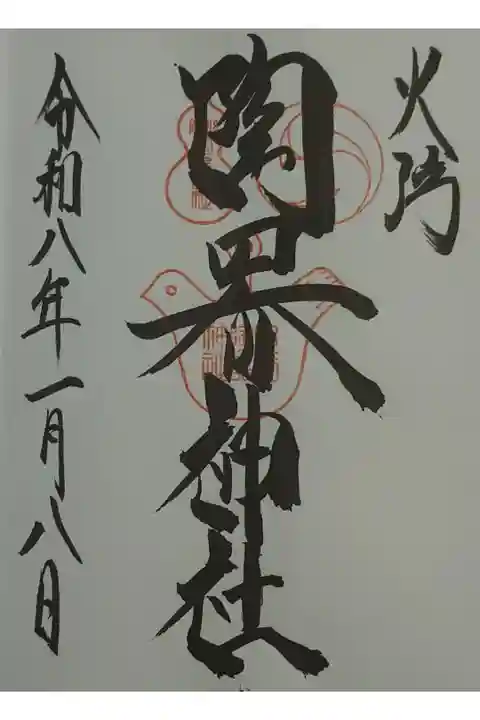 火防
陶器神社
令和八年一月八日